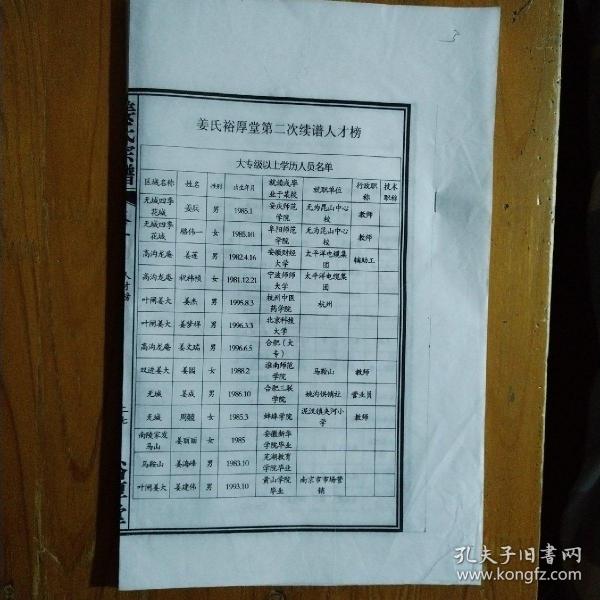 姜氏裕厚堂第二次续谱人才榜
大专级以上学历人员名单
区域名称 姓名 性别 出生年月 就读或毕业于某校 就职单位 行政职称 技术职称
无城四季花城 姜辰 男 1985.1 安庆师范学院 无为昆山中心校 教师
无城四季花城 骆伟一 女 1985.10 阜阳师范学院 无为昆山中心校 教师
高沟龙庵 姜莲 男 1982.4.16 安徽财经大学 太平洋电缆集团 辅助工
高沟龙庵 祝祎祯 女 1981.12.21 宁波师师大学 太平洋电缆集团
叶闸姜大 姜杰 男 1995.8.3 杭州中医药学院 杭州
叶闸姜大 姜梦焊 男 1996.3.3 北京科技大学
高沟龙庵 姜文瑞 男 1996.6.5 合肥(大专)
双进姜大 姜园 女 1988.2 淮南师范学院 马鞍山 教师
无城 姜成 男 1986.10 合肥三联学院 姚沟供销社 营业员
无城 周 女 1985.3 蚌埠学院 泥汊镇夹河小学 教师
南陵家发马山 姜丽丽 女 1985 安徽新华学院毕业
马鞍山 姜海峰 男 1983.10 芜湖教育学院毕业
叶闸姜大 姜建伟 男 1993.10 黄山学院毕业 南京市市场营销
人才榜
孔夫子旧书网
www.kongfz.com